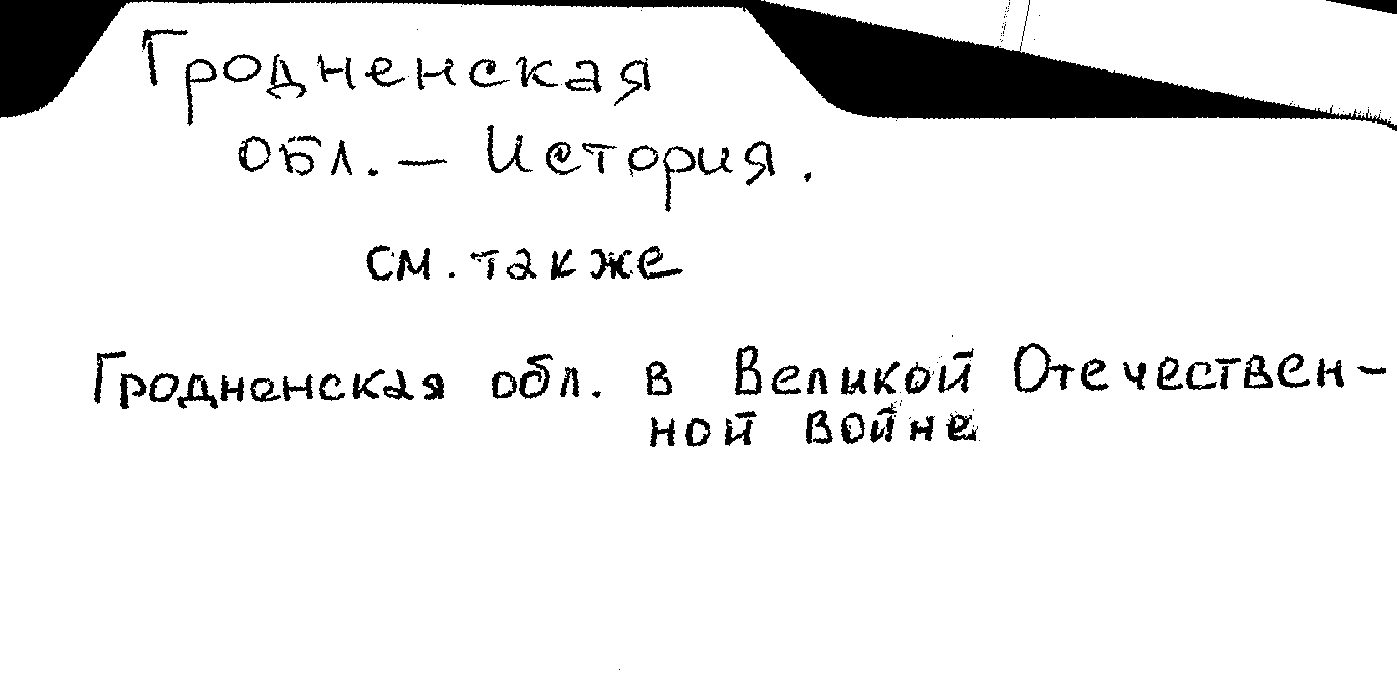 Гродненская
обл. – История.
см. также
Гродненская обл. в Великой Отечествен-
ной войне